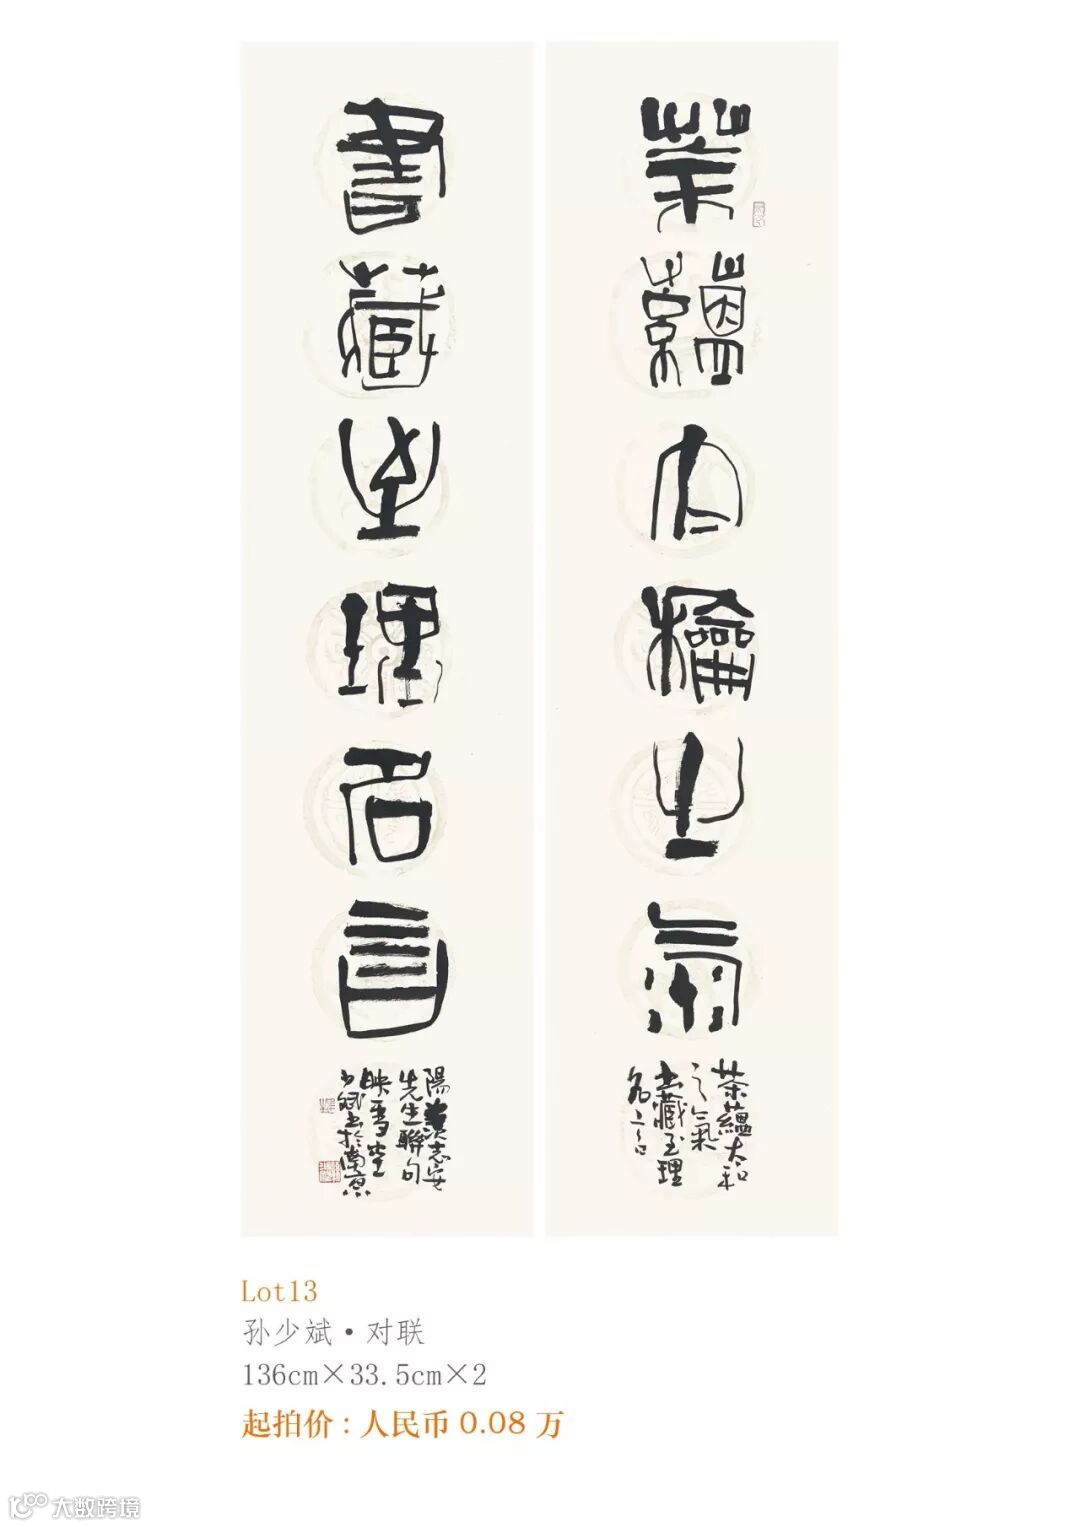 茶蘊太和之氣
書藏至理名言
茶蘊太和
之氣
書藏至理
名言
陽羨志安
先生聯句
映雪堂
少斌書於南京
Lot13
孙少斌·对联
136cm×33.5cm×2
起拍价：人民币 0.08 万
大数跨境